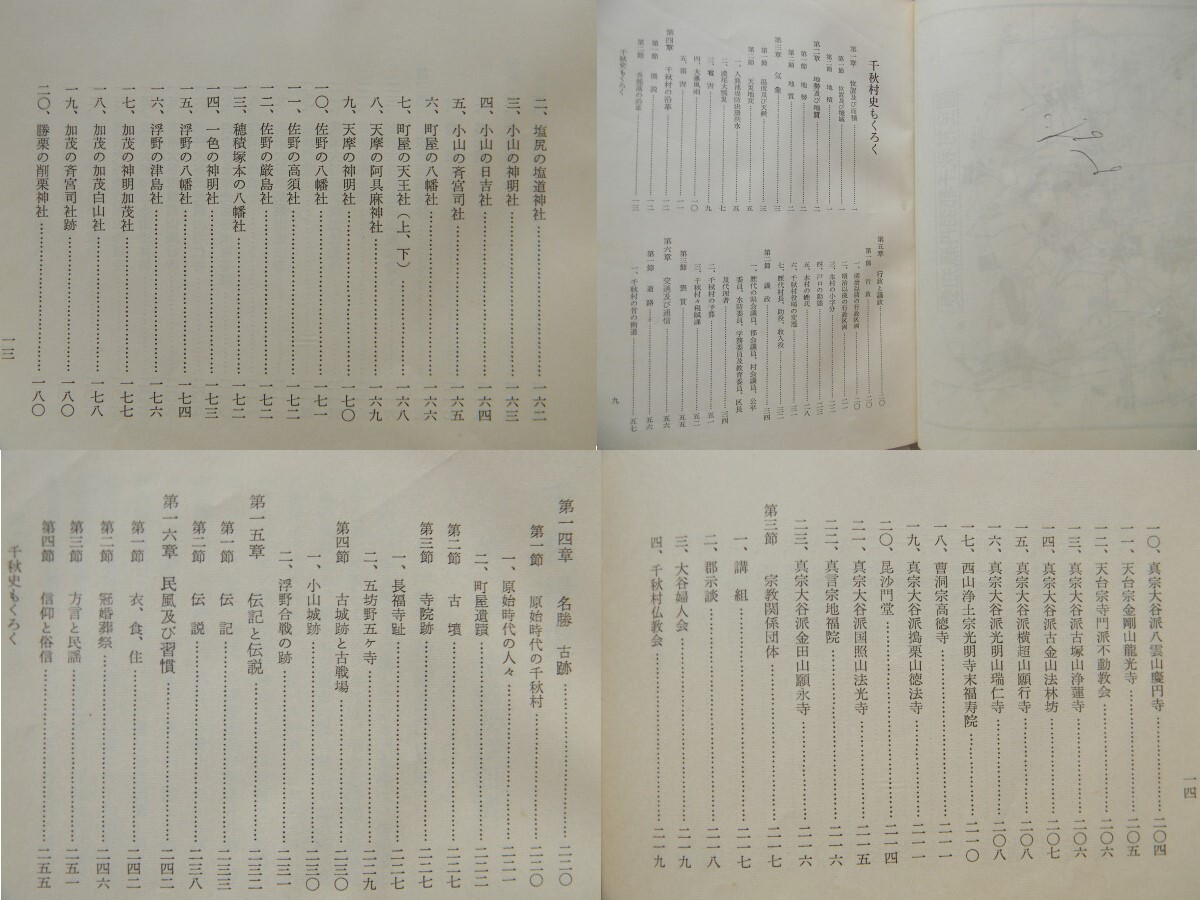 二、塩尻の塩道神社……一六二
三、小山の神明社……一六三
四、小山の日吉社……一六四
五、小山の斉宮司社……一六五
六、町屋の八幡社……一六六
七、町屋の天王社（上、下）……一六八
八、天摩の阿具麻神社……一六九
九、天摩の神明社……一七〇
一〇、佐野の八幡社……一七一
一一、佐野の高須社……一七二
一二、佐野の厳島社……一七二
一三、穂積塚本の八幡社……一七二
一四、一色の神明社……一七三
一五、浮野の八幡社……一七四
一六、浮野の津島社……一七六
一七、加茂の神明加茂社……一七七
一八、加茂の加茂白山社……一七八
一九、加茂の斉宮司社跡……一八〇
二〇、勝栗の削栗神社……一八〇
一三
千秋村史もくろく
第一章 位置及び面積……一
第一節 位置及び境域……一
第二節 地積……二
第二章 地勢及び地質……二
第一節 地勢……二
第二節 地質……二
第三章 気象……三
第一節 温度及び天候……三
第二節 天災地変……五
一、入鹿池堤防決潰洪水……五
二、濃尾大震災……七
三、電害……九
四、大暴風雨……一〇
五、雨害……一一
第四章 千秋村の沿革……一二
第一節 概説……一二
第二節 各部落の沿革……一三
千秋史もくろく
第五章 行政と議政……二〇
第一節 行政……二〇
一、明治以前の行政区画……二〇
二、明治以後の行政区画……二一
三、本村の小字分……二二
四、戸口の動態……二三
五、本村の機氏……二八
六、千秋村役場の変遷……三一
七、歴代村長、助役、収入役……三二
第二節 議政……三四
一、歴代の県会議員、郡会議員、村会議員、公平
委員、水防委員、学務委員及教育委員、区長
及代理者……三四
二、千秋村の予算……五一
三、千秋村々税賦課……五二
第三節 選賞……五五
第六章 交通及び通信……五六
第一節 道路……五六
一、千秋村の昔の街道……五七
九
第一四章 名勝 古跡……二二〇
第一節 原始時代の千秋村……二二〇
一、原始時代の人々……二二一
二、町屋遺蹟……二二二
第二節 古墳……二二七
第三節 寺院跡……二二七
一、長福寺趾……二二七
二、五坊野五ヶ寺……二二九
第四節 古城跡と古戦場……二三〇
一、小山城跡……二三〇
二、浮野合戦の跡……二三一
第一五章 伝記と伝説……二三二
第一節 伝記……二三三
第二節 伝説……二三八
第一六章 民風及び習慣……二四二
第一節 衣、食、住……二四二
第二節 冠婚葬祭……二四六
第三節 方言と民謡……二五一
第四節 信仰と俗信……二五五
千秋史もくろく
一〇、真宗大谷派八雲山慶円寺……二〇四
一一、天台宗金剛山龍光寺……二〇五
一二、天台宗寺門派不動教会……二〇六
一三、真宗大谷派古塚山浄蓮寺……二〇六
一四、真宗大谷派古金山法林坊……二〇七
一五、真宗大谷派横超山願行寺……二〇八
一六、真宗大谷派光明山瑞仁寺……二〇八
一七、西山浄土宗光明寺末福寿院……二一〇
一八、曹洞宗高徳寺……二一一
一九、真宗大谷派搗栗山徳法寺……二一一
二〇、昆沙門堂……二一四
二一、真宗大谷派国照山法光寺……二一五
二二、真言宗地福院……二一六
二三、真宗大谷派金田山願永寺……二一六
第三節 宗教関係団体……二一七
一、講組……二一七
二、郡示談……二一八
三、大谷婦人会……二一九
四、千秋村仏教会……二一九
一四